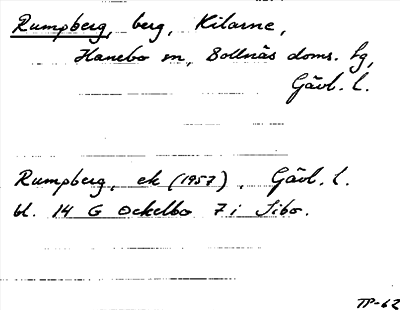 Rumpberg, berg, Kilarne,
Hanebo sn, Bollnäs doms. hg,
Gävl. l.
Rumpberg, ek (1957), Gävl. l.
bl. 14 G Ockelbo 7 i Sibo.
TP-62